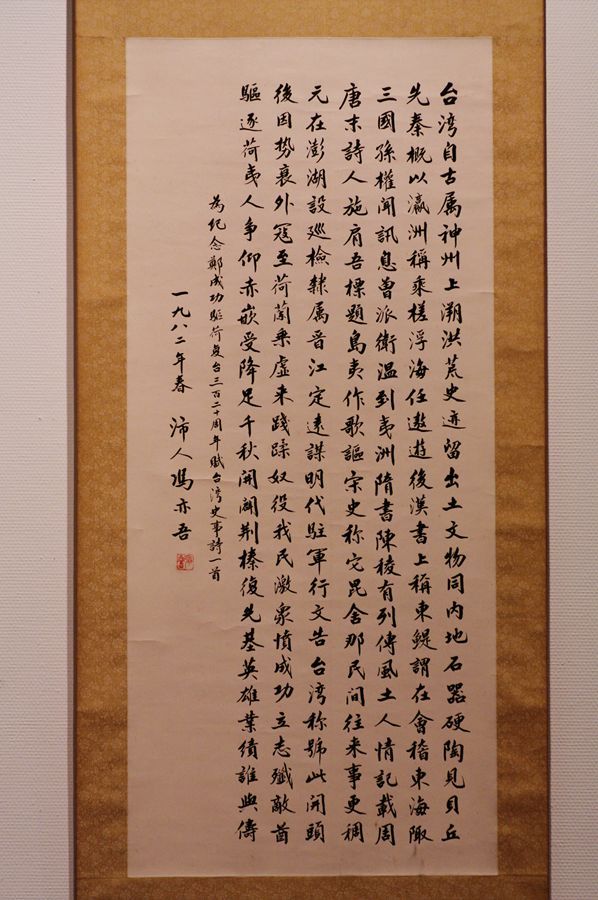 台湾自古属神州上溯洪荒史迹留出土文物同内地石器硬陶見貝丘
先秦概以瀛洲稱乘槎浮海任遨遊後漢書上稱東鯷謂在會稽東海陬
三國孫權聞訊息曾派衛溫到夷洲隋書陳稜有列傳風土人情記載周
唐末詩人施肩吾標題島夷作歌謳宋史称它毘舍那民間往来事更稠
元在澎湖設巡檢隸属晋江定遠謀明代駐軍行文告台湾称號此開頭
後因势衰外寇至荷蘭乗虚来踐踩奴役我民激衆憤成功立志殲敵酋
驅逐荷夷人争仰赤嵌受降足千秋開闢荆榛復先基英雄業績誰與儔
為紀念鄭成功驅荷复台三百二十周年賦台湾史事詩一首
一九八二年春 沛人馮亦吾